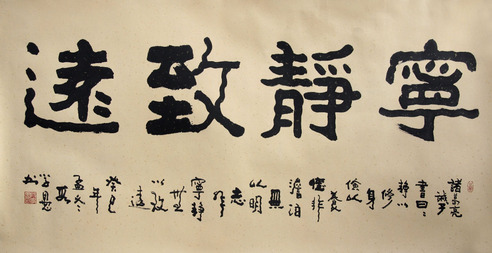 寧靜致遠
諸葛亮
誡子
書曰:
靜以
修
身
儉以
養
德非
澹泊
無
以明
志
非
寧靜
無
以致
遠
癸巳
年
孟冬
书